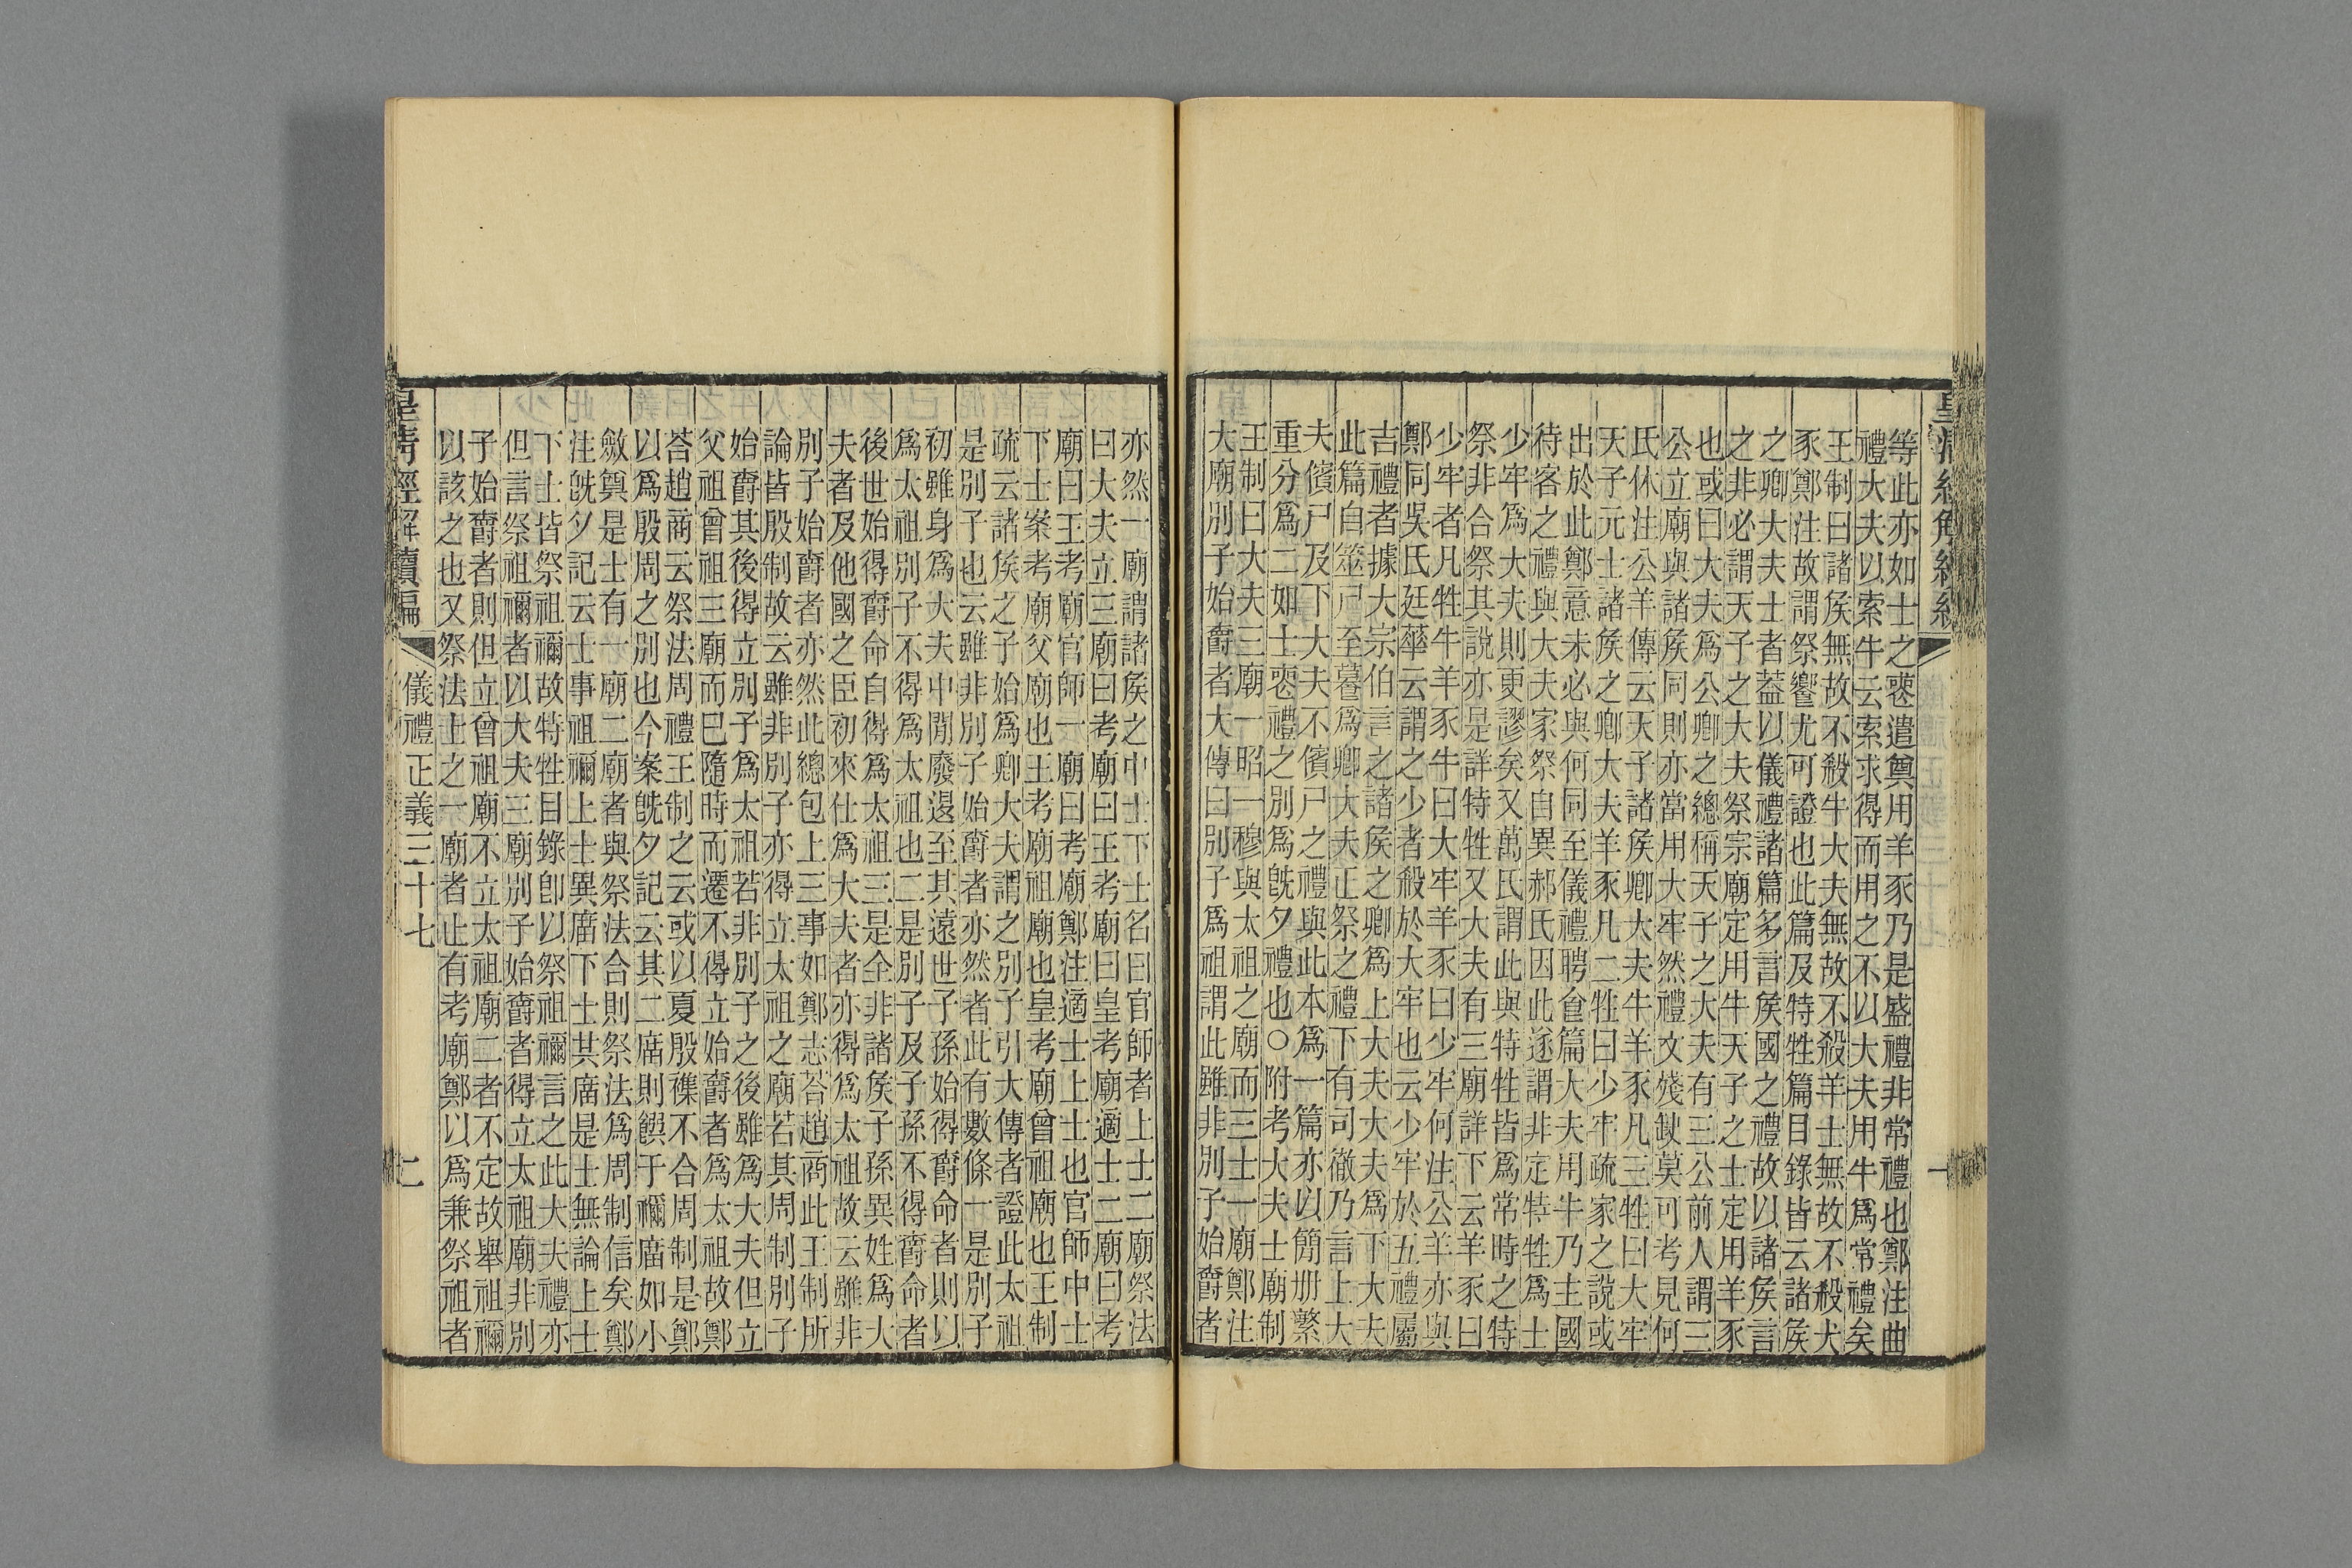 等此亦如士之喪遣奠用羊豕乃是盛禮非常禮也鄭注曲
禮大夫以索牛云索求得而用之不以大夫用牛爲常禮矣
王制曰諸矦無故不殺牛大夫無故不殺羊士無故不殺犬
豕鄭注故謂祭饗尤可證也此篇及特牲篇目錄皆云諸矦
之卿大夫士者葢以儀禮諸篇多言矦國之禮故以諸矦言
之非必謂天子之大夫祭宗廟定用牛天子之士定用羊豕
也或曰大夫爲公卿之總稱天子之大夫有三公前人謂三
公立廟與諸矦同則亦當用大牢然禮文殘缺莫可考見何
氏休注公羊傳云天子諸矦卿大夫牛羊豕凡三牲曰大牢
天子元士諸矦之卿大夫羊豕凡二牲曰少牢疏家之說或
出於此鄭意未必與何同至儀禮聘食篇大夫用牛乃主國
待客之禮與大夫家祭自異郝氏因此遂謂非定特牲爲士
少牢爲大夫則更謬矣又萬氏謂此與特牲皆爲常時之特
祭非合祭其說亦是詳特牲又大夫有三廟詳下云羊豕曰
少牢者凡牲牛羊豕牛曰大牢羊豕曰少牢何注公羊亦與
鄭同吳氏廷華云謂之少者殺於大牢也云少牢於五禮屬
吉禮者據大宗伯言之諸矦之卿爲上大夫大夫爲下大夫
此篇自筮尸至養爲卿大夫正祭之禮下有司徹乃言上大
夫儐尸及下大夫不儐尸之禮與此本爲一篇亦以簡冊繁
重分爲二如士喪禮之別爲旣夕禮也○附考大夫士廟制
王制曰大夫三廟一昭一穆與太祖之廟而三士一廟鄭注
大廟別子始爵者大傳曰別子爲祖謂此雖非別子始爵者
一
亦然一廟謂諸矦之中士下士名曰官師者上士二廟祭法
曰大夫立三廟曰考廟曰王考廟曰皇考廟適士二廟曰考
廟曰王考廟官師一廟曰考廟鄭注適士上士也官師中士
下士案考廟父廟也王考廟祖廟也皇考廟曾祖廟也王制
疏云諸矦之子始爲卿大夫謂之別子引大傳者證此太祖
是別子也云雖非別子始爵者亦然者此有數條一是別子
初雖身爲大夫中閒廢退至其遠世子孫始得爵命者則以
爲太祖別子不得爲太祖也二是別子及子孫不得爵命者
後世始得爵命自得爲太祖三是全非諸矦子孫異姓爲大
夫者及他國之臣初來仕爲大夫者亦得爲太祖故云雖非
別子始爵者亦然此總包上三事如鄭志荅趙商此王制所
論皆殷制故云雖非別子亦得立太祖之廟若其周制別子
始爵其後得立別子爲太祖若非別子之後雖爲大夫但立
父祖曾祖三廟而已隨時而遷不得立始爵者爲太祖故鄭
荅趙商云祭法周禮王制之云或以夏殷襍不合周制是鄭
以爲殷周之別也今案旣夕記云其二廟則饌于禰廟如小
斂奠是士有一廟二廟者與祭法合則祭法爲周制信矣鄭
注旣夕記云士事祖禰上士異廟下士共廟是士無論上士
下士皆祭祖禰故特牲目錄卽以祭祖禰言之此大夫禮亦
但言祭祖禰者以大夫三廟別子始爵者得立太祖廟非別
子始爵者則但立曾祖廟不立太祖廟二者不定故舉祖禰
以該之也又祭法上之一廟者止有考廟鄭以爲兼祭祖者
皇清經解續編
儀禮正義三十七
二